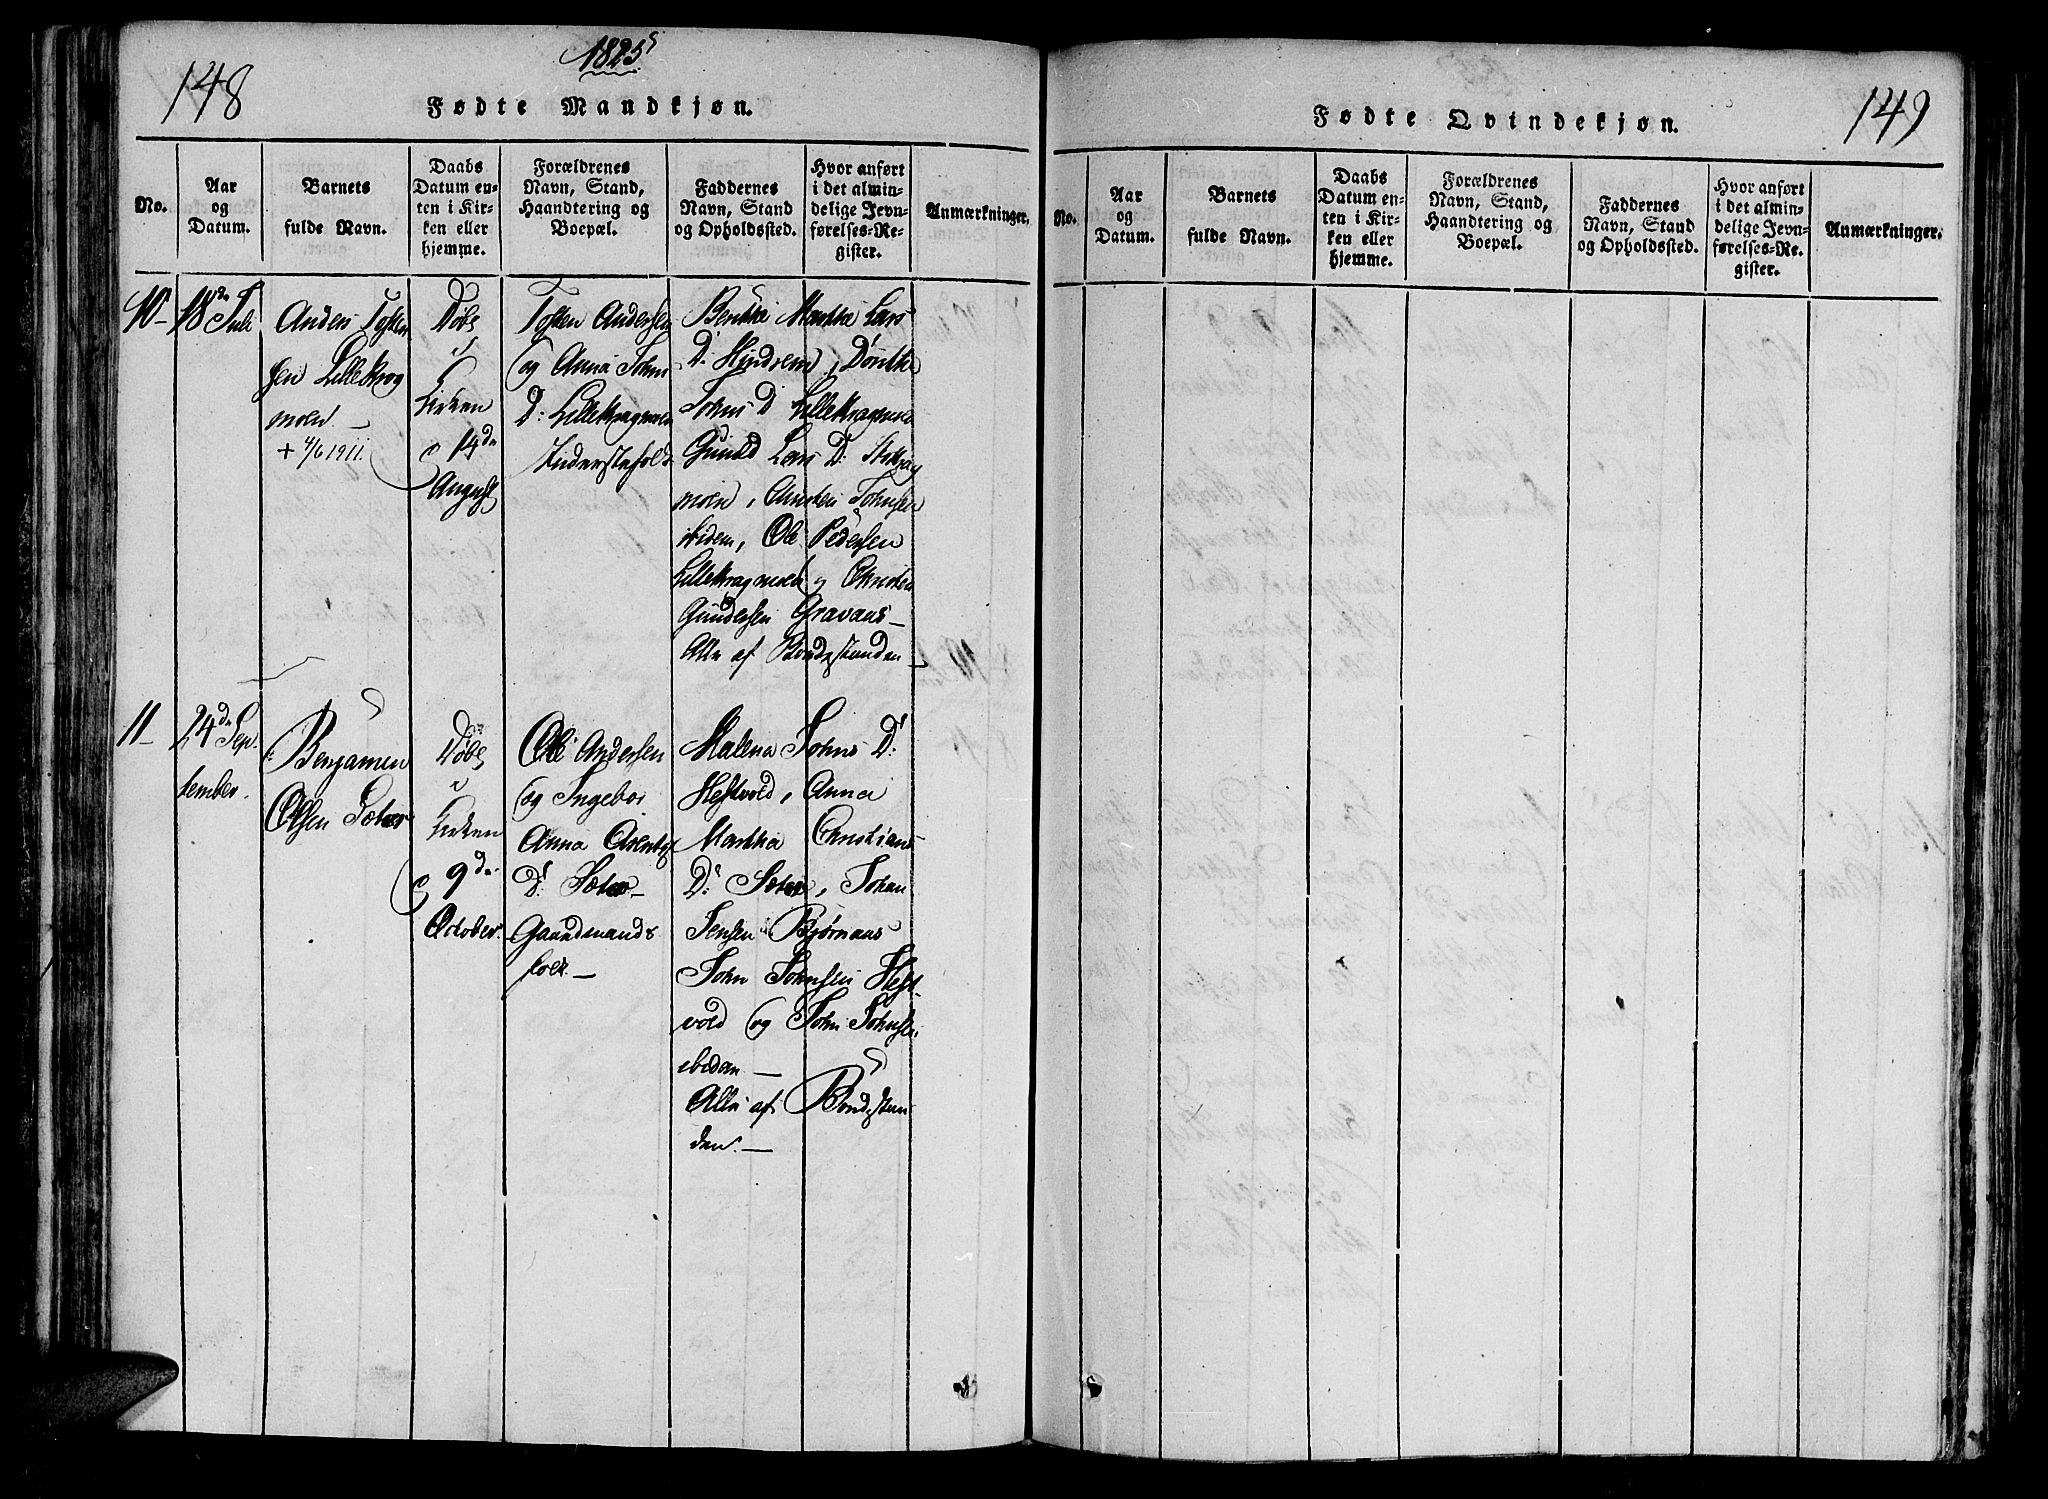 148
1825
Fødte Mandkjøn.
No.
Aar
og
Datum.
Barnets
fulde Navn.
Daabs
Datum en-
ten i Kir-
ken eller
hjemme.
Forældrenes
Navn, Stand,
Haandtering og
Boepæl.
Faddernes
Navn, Stand
og Opholdssted.
Hvor anført
i det almin-
delige Jevn-
førelses-Re-
gister.
Anmærkninger.
10
18de Juli
Anders Tosten
sen Lillekrog
moen.
+ 4/6 1911.
Døbt
i
Kirken
14de
August
Tosten Andersen
og Anna Johns
D: Lillekragmoen
Inderstefolk
Berithe Martha Lars
D: Hindrem, Dorithe
Johns D Lillekragmoen
Gunild Lars D:
moen, Christen Johnsen
ibidem, Ole Pedersen
Lillekragmoen og Christen
Gundersen Gravaas
Alle af Bondestanden
11
24de Sep-
tember.
Benjamen
Olsen Sæter
Døbt
i
Kirken
9de
October.
Ole Andersen
og Ingebor
Anna Arents
D: Sæter
Gaardmands
folk
Malena Johns D:
Hestvold, Anna
Martha Christians
D: Sæter, Johan
Jensen Bjørnaas
John Johnsen Hest-
vold og John Johnsen
ibidem
Alle af Bondestan
den.
149
Fødte Qvindekjøn.
No.
Aar
og
Datum.
Barnets
fulde Navn.
Daabs
Datum en-
ten i Kir-
ken eller
hjemme.
Forældrenes
Navn, Stand,
Haandtering og
Boepæl.
Faddernes
Navn, Stand
og Opholdssted.
Hvor anført
i det almin-
delige Jevn-
førelses-Re-
gister.
Anmærkninger.